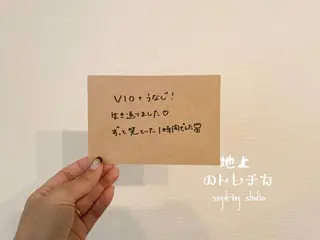 VIO+うなじ!
生き返りました♡
ずっと笑っていた1時間でした
地上
のトレチカ